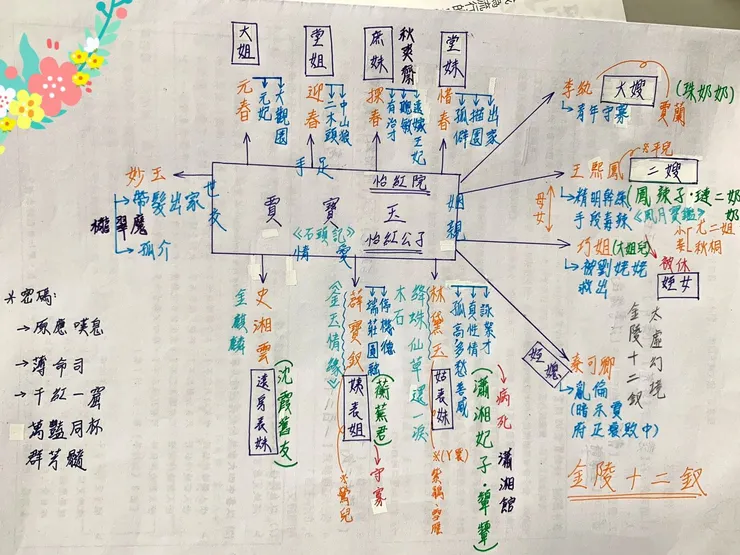 大姐
元春
大觀園
元妃
堂姐
迎春
中山狼
二木頭
庶妹
秋爽齋
探春
遠嫁王妃
聰敏
有治才
堂妹
惜春
出家
描圖
孤僻
手足
李紈
大嫂
(珠奶奶)
青年守寡
賈蘭
王熙鳳
平兒
二嫂
精明幹練
手段毒辣
(鳳辣子·璉二奶奶
《風月寶鑑》
尤二姐
秋桐
母女
巧姐(大姐兒)
被劉姥姥
救出
被休
姪女
秦可卿
姪媳
亂倫
(暗示賈
府正衰敗中)
太虛幻境
金陵十二釵
妙玉
帶髮出家
櫳翠庵
孤介
世交
怡紅院
賈寶玉
怡紅公子
《石頭記》
情
姻親
史湘雲
金麒麟
遠房表妹
(沈霞舊友)
薛寶釵
《金玉情緣》
停機德
端莊圓融
姨表姐
(蘅蕪君)
守寡
鶯兒
林黛玉
木石
絳珠仙草還一淚
詠絮才
真性情
孤高·多愁善感
姑表妹
(丫鬟)
紫鵑·雪雁
(瀟湘妃子·顰顰)
病死
瀟湘館
※密碼:
→原應嘆息
→薄命司
→千紅一窟
萬豔同杯
群芳髓
金陵十二釵